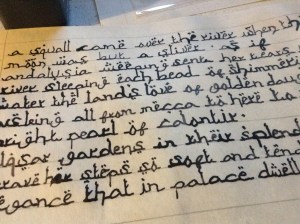 a squall came over the river when th
moon was but a sliver. as if
andalusia weeping sent her tears
river sleeping each bead of shimmeri
water the lands love of golden days
us leing all from mecca to here to
bright pearl of calontir.
alcasar gardens in their splend
crave her steps so soft and tend
elegance that in palace dwell